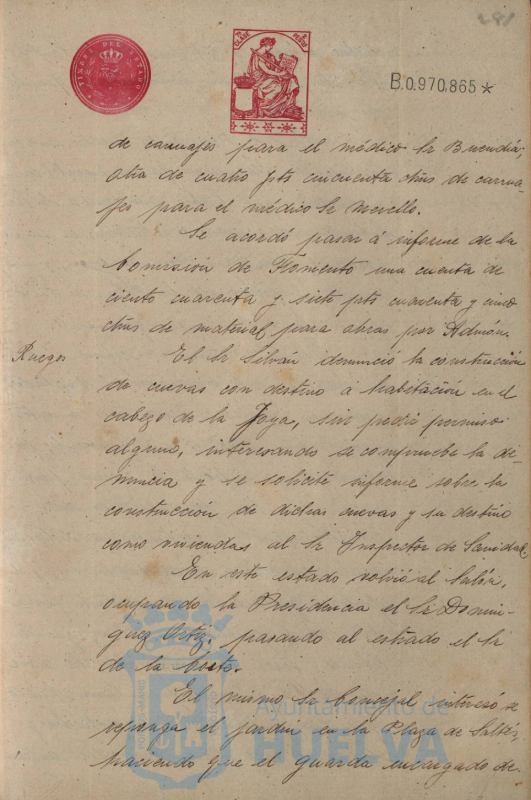 281
TIMBRE DEL ESTADO
B.0.970,865*
de carruajes para el médico Sr Buendía
otra de cuatro pts cincuenta ctms de carrua-
jes para el médico Sr Merello.
Se acordó pasar á informe de la
Comisión de Fomento una cuenta de
ciento cuarenta y siete pts cuarenta y cinco
ctms de material para obras por Admón.
Ruegos
El Sr Silván denunció la construcción
de cuevas con destino á habitación en el
cabezo de la Joya, sin pedir permiso
alguno, interesando se compruebe la de-
nuncia y se solicite informe sobre la
construcción de dichas cuevas y su destino
como viviendas al Sr Inspector de Sanidad.
En este estado volvió al Salón,
ocupando la Presidencia el Sr Domin-
guez Ortiz, pasando al estrado el Sr
de la Corte.
El mismo Sr Concejal interesó se
reponga el jardin en la Plaza de Saltés,
haciendo que el guarda encargado de
Ayuntamiento de
HUELVA